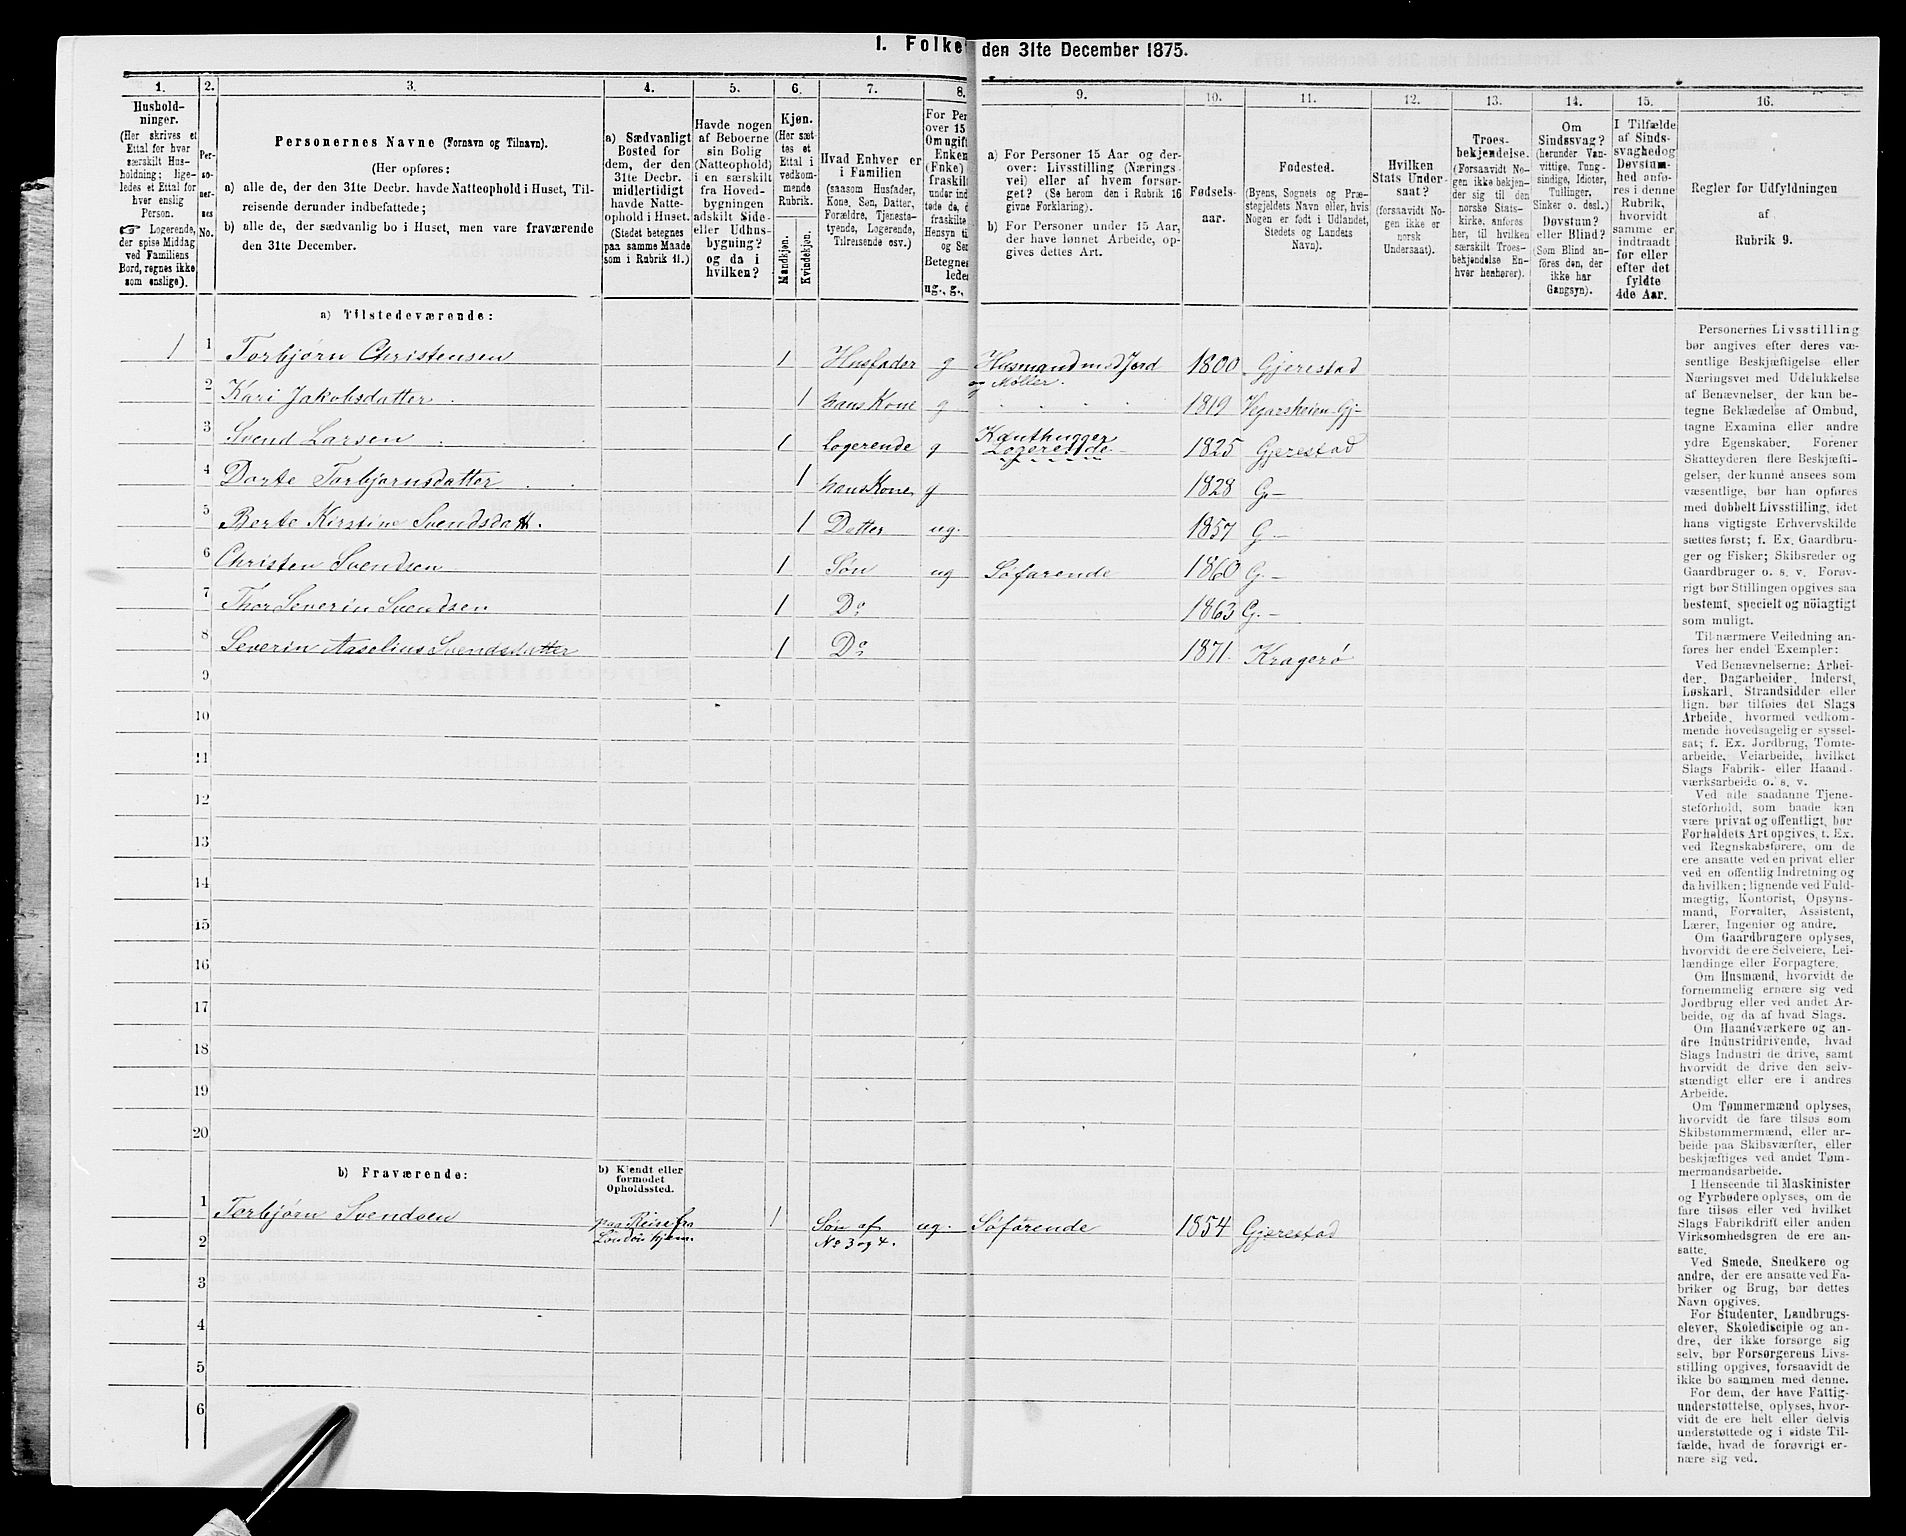 1. Folke
den 31te December 1875.
1.
2.
3.
4.
5.
6.
7.
8.
9.
10.
11.
12.
13.
14.
15.
16.
Hushold-
ninger.
(Her skrives et
Ettal for hver
særskilt Hus-
holdning; lige-
ledes et Ettal for
hver enslig
Person.
☞ Logerende,
der spise Middag
ved Familiens
Bord, regnes ikke
som enslige).
Per-
so-
ner-
nes
No.
Personernes Navne (Fornavn og Tilnavn).
(Her opføres:
a) alle de, der den 31te Decbr. havde Natteophold i Huset, Til-
reisende derunder indbefattede;
b) alle de, der sædvanlig bo i Huset, men vare fraværende
den 31te December.
a) Sædvanligt
Bosted for
dem, der den
31te Decbr.
midlertidigt
havde Natte-
ophold i Huset.
(Stedet betegnes
paa samme Maade
som i Rubrik 11.)
Havde nogen
af Beboerne
sin Bolig
(Natteophold)
i en særskilt
fra Hoved-
bygningen
adskilt Side-
eller Udhus-
bygning?
og da i
hvilken?
Kjøn.
(Her sæt-
tes et
Ettal i
vedkom-
mende
Rubrik.
Mandkjøn.
Kvindekjøn.
Hvad Enhver er
i Familien
(saasom Husfader,
Kone, Søn, Datter,
Forældre, Tjeneste-
tyende, Logerende,
Tilreisende osv.)
For Per
over 15
Om ugift
Enken
(Fnke)
fraskilt
under ind
tøde de, d
fraskilte
Hensyn til
og Se
Betegnes
lede
ug., g.,
a) For Personer 15 Aar og der-
over: Livsstilling (Nærings-
vei) eller af hvem forsør-
get? (Se herom den i Rubrik 16
givne Forklaring).
b) For Personer under 15 Aar,
der have lønnet Arbeide, op-
gives dettes Art.
Fødsels-
aar.
Fødested.
(Byens, Sognets og Præ-
stegjeldets Navn eller, hvis
Nogen er født i Udlandet,
Stedets og Landets
Navn).
Hvilken
Stats Under-
saat?
(forsaavidt No-
gen ikke er
norsk
Undersaat).
Troes-
bekjendelse.
(Forsaavidt No-
gen ikke bekjen-
der sig til den
norske Stats-
kirke, anføres
her, til hvilken
særskilt Troes-
bekjendelse En-
hver henhører).
Om
Sindssvag?
(herunder Van-
vittige, Tung-
sindige, Idioter,
Tullinger,
Sinker o. desl.)
Døvstum?
eller Blind?
(Som Blind an-
føres den, der
ikke har
Gangsyn).
I Tilfælde
af Sinds-
svaghed og
Døvstum-
hed anfø-
res i denne
Rubrik,
hvorvidt
samme er
indtraadt
før eller
efter det
fyldte
4de Aar.
Regler for Udfyldningen
af
Rubrik 9.
a) Tilstedeværende:
1 1 Torbjørn Christensen 1 Husfader g Husmand med Jord 1800 Gjerestad
og Møller.
2 Kari Jakobsdatter 1 hans Kone g 1819 Vegarsheien Gj-
3 Svend Larsen 1 Logerende g Kanthugger 1825 Gjerestad
Logerende
4 Dorte Torbjørnsdatter 1 hans Kone g 1828 G.-
5 Berte Kirstine Svendsdatt. 1 Datter ug. 1857 G.-
6 Christen Svendsen 1 Søn ug Søfarende 1860 G.-
7 Thor Severin Svendsen 1 Do 1863 G.-
8 Severin Aaselius Svendsdatter 1 Do 1871. Kragerø
9
10
11
12
13
14
15
16
17
18
19
20
b) Fraværende:
b) Kjendt eller
formodet
Opholdssted.
1 Torbjørn Svendsen paa Reise fra 1 Søn af ug. Søfarende 1854 Gjerestad
2 London hjem. No 3 og 4.
3
4
5
6
Personernes Livsstilling
bør angives efter deres væ-
sentlige Beskjæftigelse eller
Næringsvei med Udelukkelse
af Benævnelser, der kun be-
tegne Beklædelse af Ombud,
tagne Examina eller andre
ydre Egenskaber. Forener
Skatteyderen flere Beskjæfti-
gelser, der kunne ansees som
væsentlige, bør han opføres
med dobbelt Livsstilling, idet
hans vigtigste Erhvervskilde
sættes først; f. Ex. Gaardbru-
ger og Fisker; Skibsreder og
Gaardbruger o. s. v. Forøv-
rigt bør Stillingen opgives saa
bestemt, specielt og nøiagtigt
som muligt.
Til nærmere Veiledning an-
føres her endel Exempler:
Ved Benævnelserne: Arbei-
der, Dagarbeider, Inderst,
Løskarl, Strandsidder eller
lign. bør tilføies det Slags
Arbeide, hvormed vedkom-
mende hovedsagelig er syssel-
sat; f. Ex. Jordbrug, Tomte-
arbeide, Veiarbeide, hvilket
Slags Fabrik- eller Haand-
værksarbeide o. s. v.
Ved alle saadanne Tjene-
steforhold, som baade kan
være privat og offentligt, bør
Forholdets Art opgives, t. Ex.
ved Regnskabsførere, om de
ere ansatte ved en privat eller
ved en offentlig Indretning og
da hvilken; lignende ved Fuld-
mægtig, Kontorist, Opsyns-
mand, Forvalter, Assistent,
Lærer, Ingeniør og andre.
Om Gaardbrugere oplyses,
hvorvidt de ere Selveiere, Lei-
lændinge eller Forpagtere.
Om Husmænd, hvorvidt de
fornemmelig ernære sig ved
Jordbrug eller ved andet Ar-
beide, og da af hvad Slags.
Om Haandværkere og an-
dre Industridrivende, hvad
Slags Industri de drive, samt
hvorvidt de drive den selv-
stændigt eller ere i andres
Arbeide.
Om Tømmermænd oplyses,
hvorvidt de fare tilsøs som
Skibstømmermænd, eller ar-
beide paa Skibsværfter, eller
beskjæftiges ved andet Tøm-
mermandsarbeide.
I Henseende til Maskinister
og Fyrbødere oplyses, om de
fare tilsøs eller ved hvilket
Slags Fabrikdrift eller anden
Virksomhedsgren de ere an-
satte.
Ved Smede, Snedkere og
andre, der ere ansatte ved Fa-
briker og Brug, bør dettes
Navn opgives.
For Studenter, Landbrugs-
elever, Skoledisciple og an-
dre, der ikke forsørge sig
selv, bør Forsørgerens Livs-
stilling opgives, forsaavidt de
ikke bo sammen med denne.
For dem, der have Fattig-
understøttelse, oplyses, hvor-
vidt de ere helt eller delvis
understøttede og i sidste Til-
fælde, hvad de forøvrigt er-
nære sig ved.